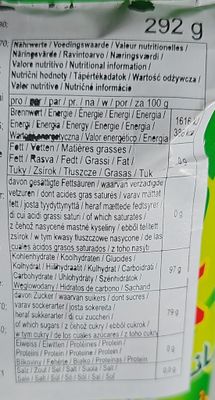 292 g
Nährwerte / Voedingswaarde / Valeur nutritionelles /
Näringsvärde / Ravintoarvo / Næringsværdi /
Valore nutritivo / Nutritional information /
Nutriční hodnoty / Tápértékadatok / Wartość odżywcza /
Valer nutritive / Nutričné informácie
pro / per / par / pr. / na / w / por / za 100 g
Brennwert / Energie / Énergie / Energi / Energia /
Energy / Energia / Energie / Energia / 1616
energetyczna / Valor energético / Energia
Fett / Vetten / Matières grasses /
Fett / Rasva / Fedt / Grassi / Fat / 0g
Tuky / Zsírok / Tłuszcze / Grasas / Tuk
davon gesättigte Fettsäuren / waarvan verzadigde
vetzuren / dont acides gras saturés / varav mättat
fett / josta tyydyttynyttä / heraf mættede fedtsyrer /
di cui acidi grassi saturi / of which saturates / 0 g
z čehož nasycené mastné kyseliny / ebből telített
zsírok / w tym kwasy tłuszczowe nasycone / de las
cuales ácidos grasos saturados / z toho nasýt.
Kohlenhydrate / Koolhydraten / Glucides /
Kolhydrat / Hiilihydraatit / Kulhydrat / Carboidrati / 97 g
Carbohydrate / Uhlohydráty / Szénhidrátok /
Węglowodany / Hidratos de carbono / Sacharid
davon Zucker / waarvan suikers / dont sucres /
varav sockerarter / josta sokereita /
heraf sukkerarter / di cui zuccheri / 79 g
of which sugars / z čehož cukry / ebből cukrok /
w tym cukry / de los cuales azúcares / z toho cukry
Eiweiss / Eiwitten / Protéines /
Proteiini / Protein / Proteine / 0 g
Bílkoviny / Fehérje / Białko / Proteínas / Protein
Salz / Zout / Sel / Salt / Suola / Salt /
Sale / Salt / Sůl / Só / Sól / Sal / Soľ